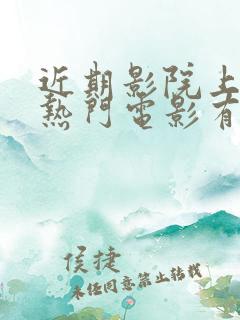 近期影院上
熱門電影有
侯捷
未經同意禁止轉載